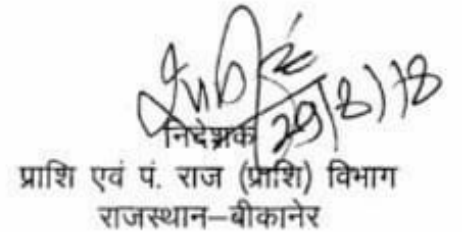 29/8/18
निदेशक
प्राशि एवं पं. राज (प्राशि) विभाग
राजस्थान–बीकानेर